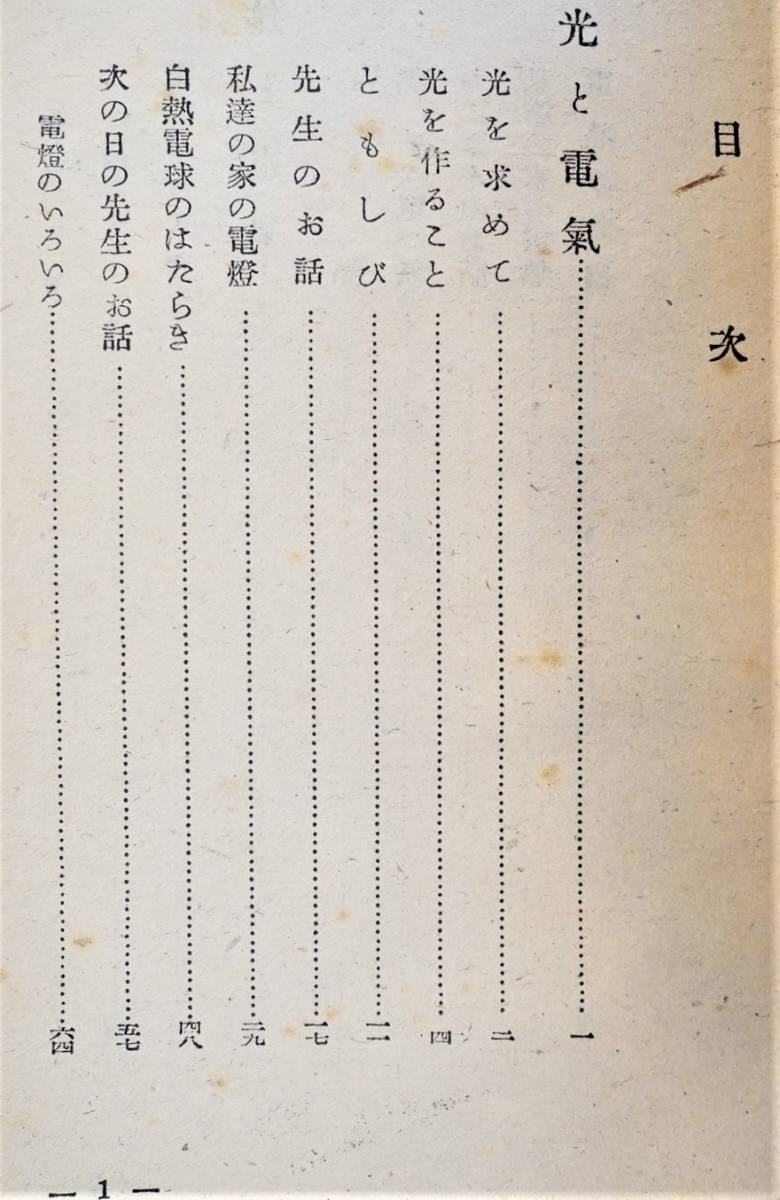 目次
光と電氣……一
光を求めて……二
光を作ること……四
ともしび……一一
先生のお話……一七
私達の家の電燈……二九
白熱電球のはたらき……四八
次の日の先生のお話……五七
電燈のいろいろ……六四
— 1 —